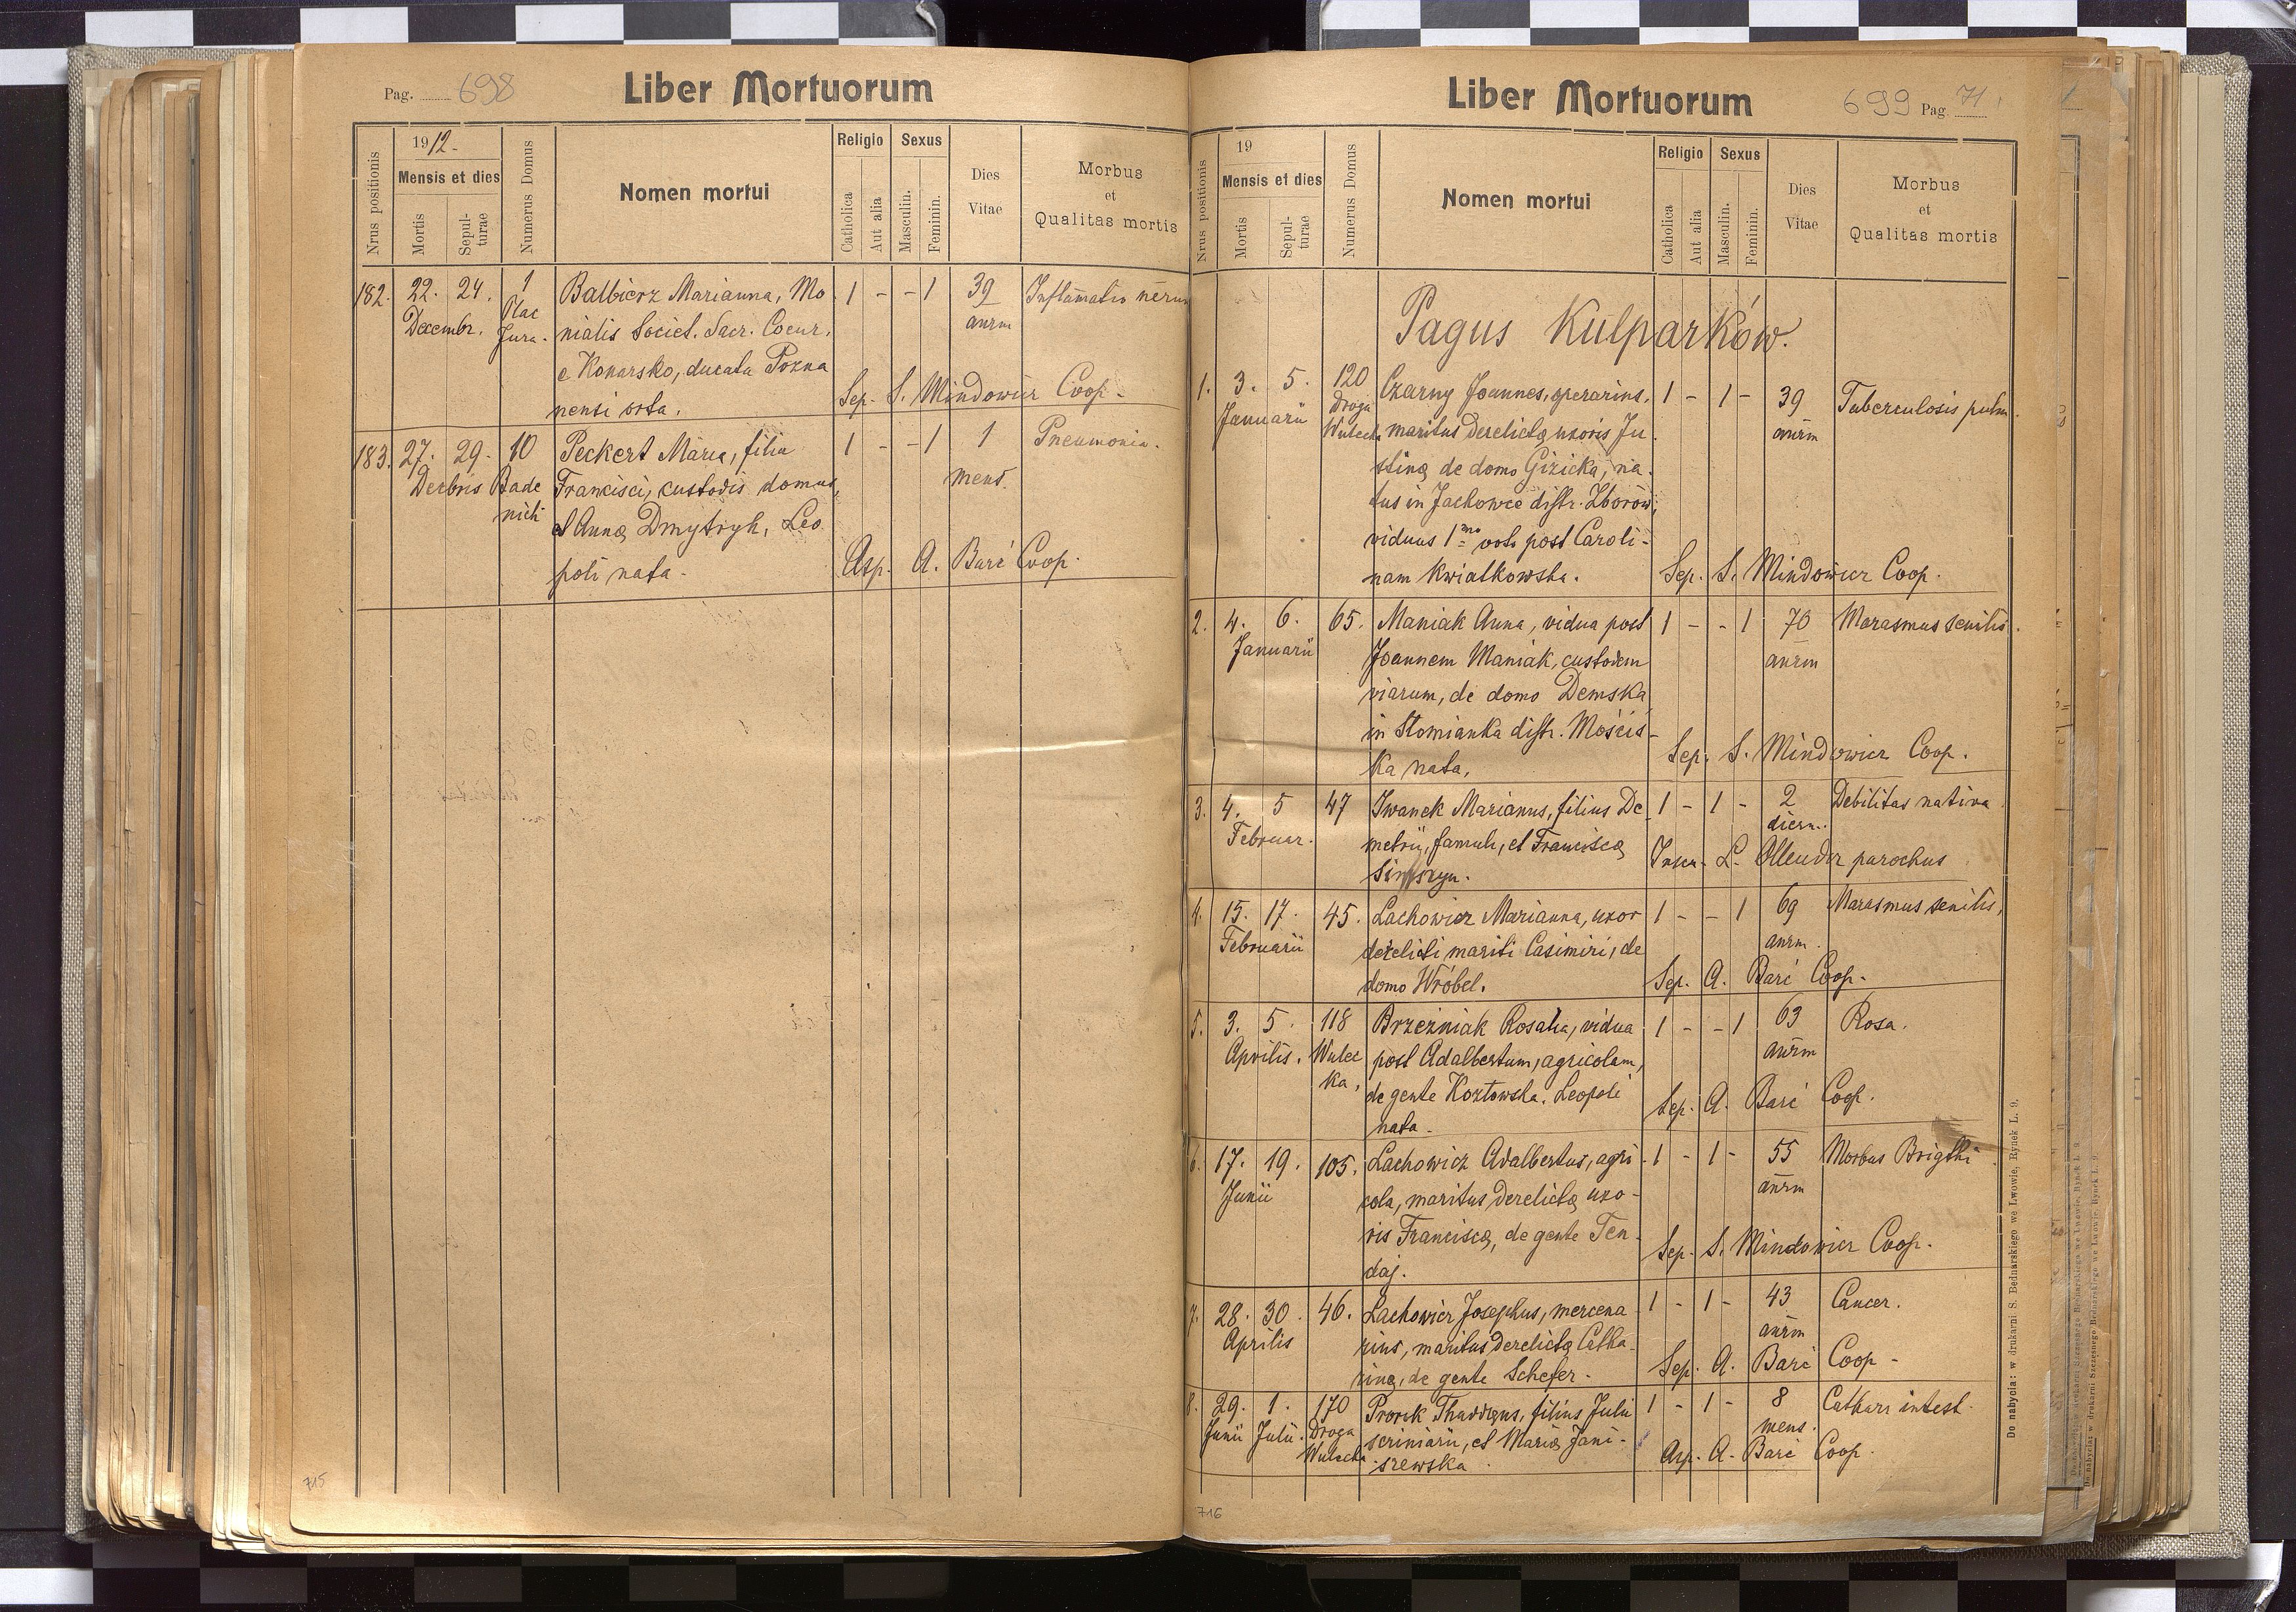 Pag. 698
Liber Mortuorum
Nrus positionis
1912.
Mensis et dies
Mortis
Sepulturae
Numerus Domus
Nomen mortui
Religio
Catholica
Aut alia
Sexus
Masculin.
Feminin.
Dies Vitae
Morbus
et
Qualitas mortis
182. 22. 24. 1 Balbierz Marianna, Mo 1 - - 1 39
Decembr. Plac Jura. nialis Societ. Sacr. Coeur. anrm
e Konarsko, ducatu Pozna
nensi orta. Sep. S. Mindowicz Coop.
183. 27. 29. 10 Peckert Maria, filia 1 - - 1 1 Pneumonia.
Decbris Bade Francisci, custodis domus, mens.
nich et Annæ Dmytryk, Leo
poli nata. Asp. A. Barć Coop.
715
Liber Mortuorum
699 Pag. 71.
Nrus positionis
19
Mensis et dies
Mortis
Sepulturae
Numerus Domus
Nomen mortui
Religio
Catholica
Aut alia
Sexus
Masculin.
Feminin.
Dies Vitae
Morbus
et
Qualitas mortis
Pagus Kulparków.
1. 3. 5. 120 Czarny Joannes, operarius, 1 - 1 - 39 Tuberculosis pulm.
Januarii Droga Wulecka maritus derelictæ uxoris Ju anrm
stinæ de domo Gizicka, na
tus in Jackowce distr. Zborów,
viduus 1mo voto post Caroli-
nam Kwiatkowska. Sep. S. Mindowicz Coop.
2. 4. 6. 65. Maniak Anna, vidua post 1 - - 1 70 Marasmus senilis.
Januarii Joannem Maniak, custodem anrm
viarum, de domo Demska
in Słomianka distr. Mościs-
ka nata. Sep. S. Mindowicz Coop.
3. 4. 5 47 Iwanek Marianus, filius De 1 - 1 - 2 Debilitas nativa
Februar. metrii, famuli, et Franciscæ dierm.
L. Ollender parochus
4. 15. 17. 45. Lachowicz Marianna, uxor 1 - - 1 69 Marasmus senilis,
Februarii derelicti mariti Casimiri, de anrm.
domo Wróbel. Sep. A. Barć Coop.
5. 3. 5. 118 Brzeźniak Rosalia, vidua 1 - - 1 63 Rosa.
Aprilis. Wulec post Adalbertum, agricolam, anrm
ka, de gente Kozłowska. Leopoli
nata. Sep. A. Barć Coop.
6. 17. 19. 105. Lachowicz Adalbertus, agri 1 - 1 - 55 Morbus Brigthi
Junii cola, maritus derelictæ uxo- anrm
ris Franciscæ, de gente Ten
daj. Sep. S. Mindowicz Coop.
7. 28. 30. 46. Lachowicz Josephus, mercena 1 - 1 - 43 Cancer.
Aprilis rius, maritus derelictæ Catha- anrm
rinæ, de gente Schefer. Sep. A. Barć Coop.
8. 29. 1. 170 Prorok Thaddæus, filius Julii 1 - 1 - 8 Catharr intest.
Junii Julii. Droga Wulecka scriniarii, et Mariæ Jani- mens.
szewska. Asp. A. Barć Coop.
716
Do nabycia: w drukarni S. Bednarskiego we Lwowie, Rynek L. 9.